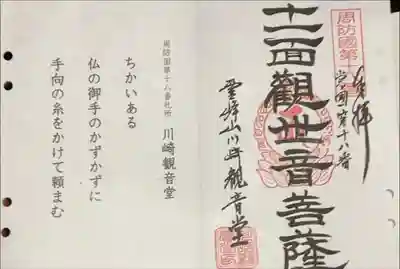 奉拝
周防國第十
當国第十八番
十一面觀世音菩薩
霊峰山川崎観音堂
周防国第十八番札所　川崎観音堂
ちかいある
仏の御手のかずかずに
手向の糸をかけて頼まむ